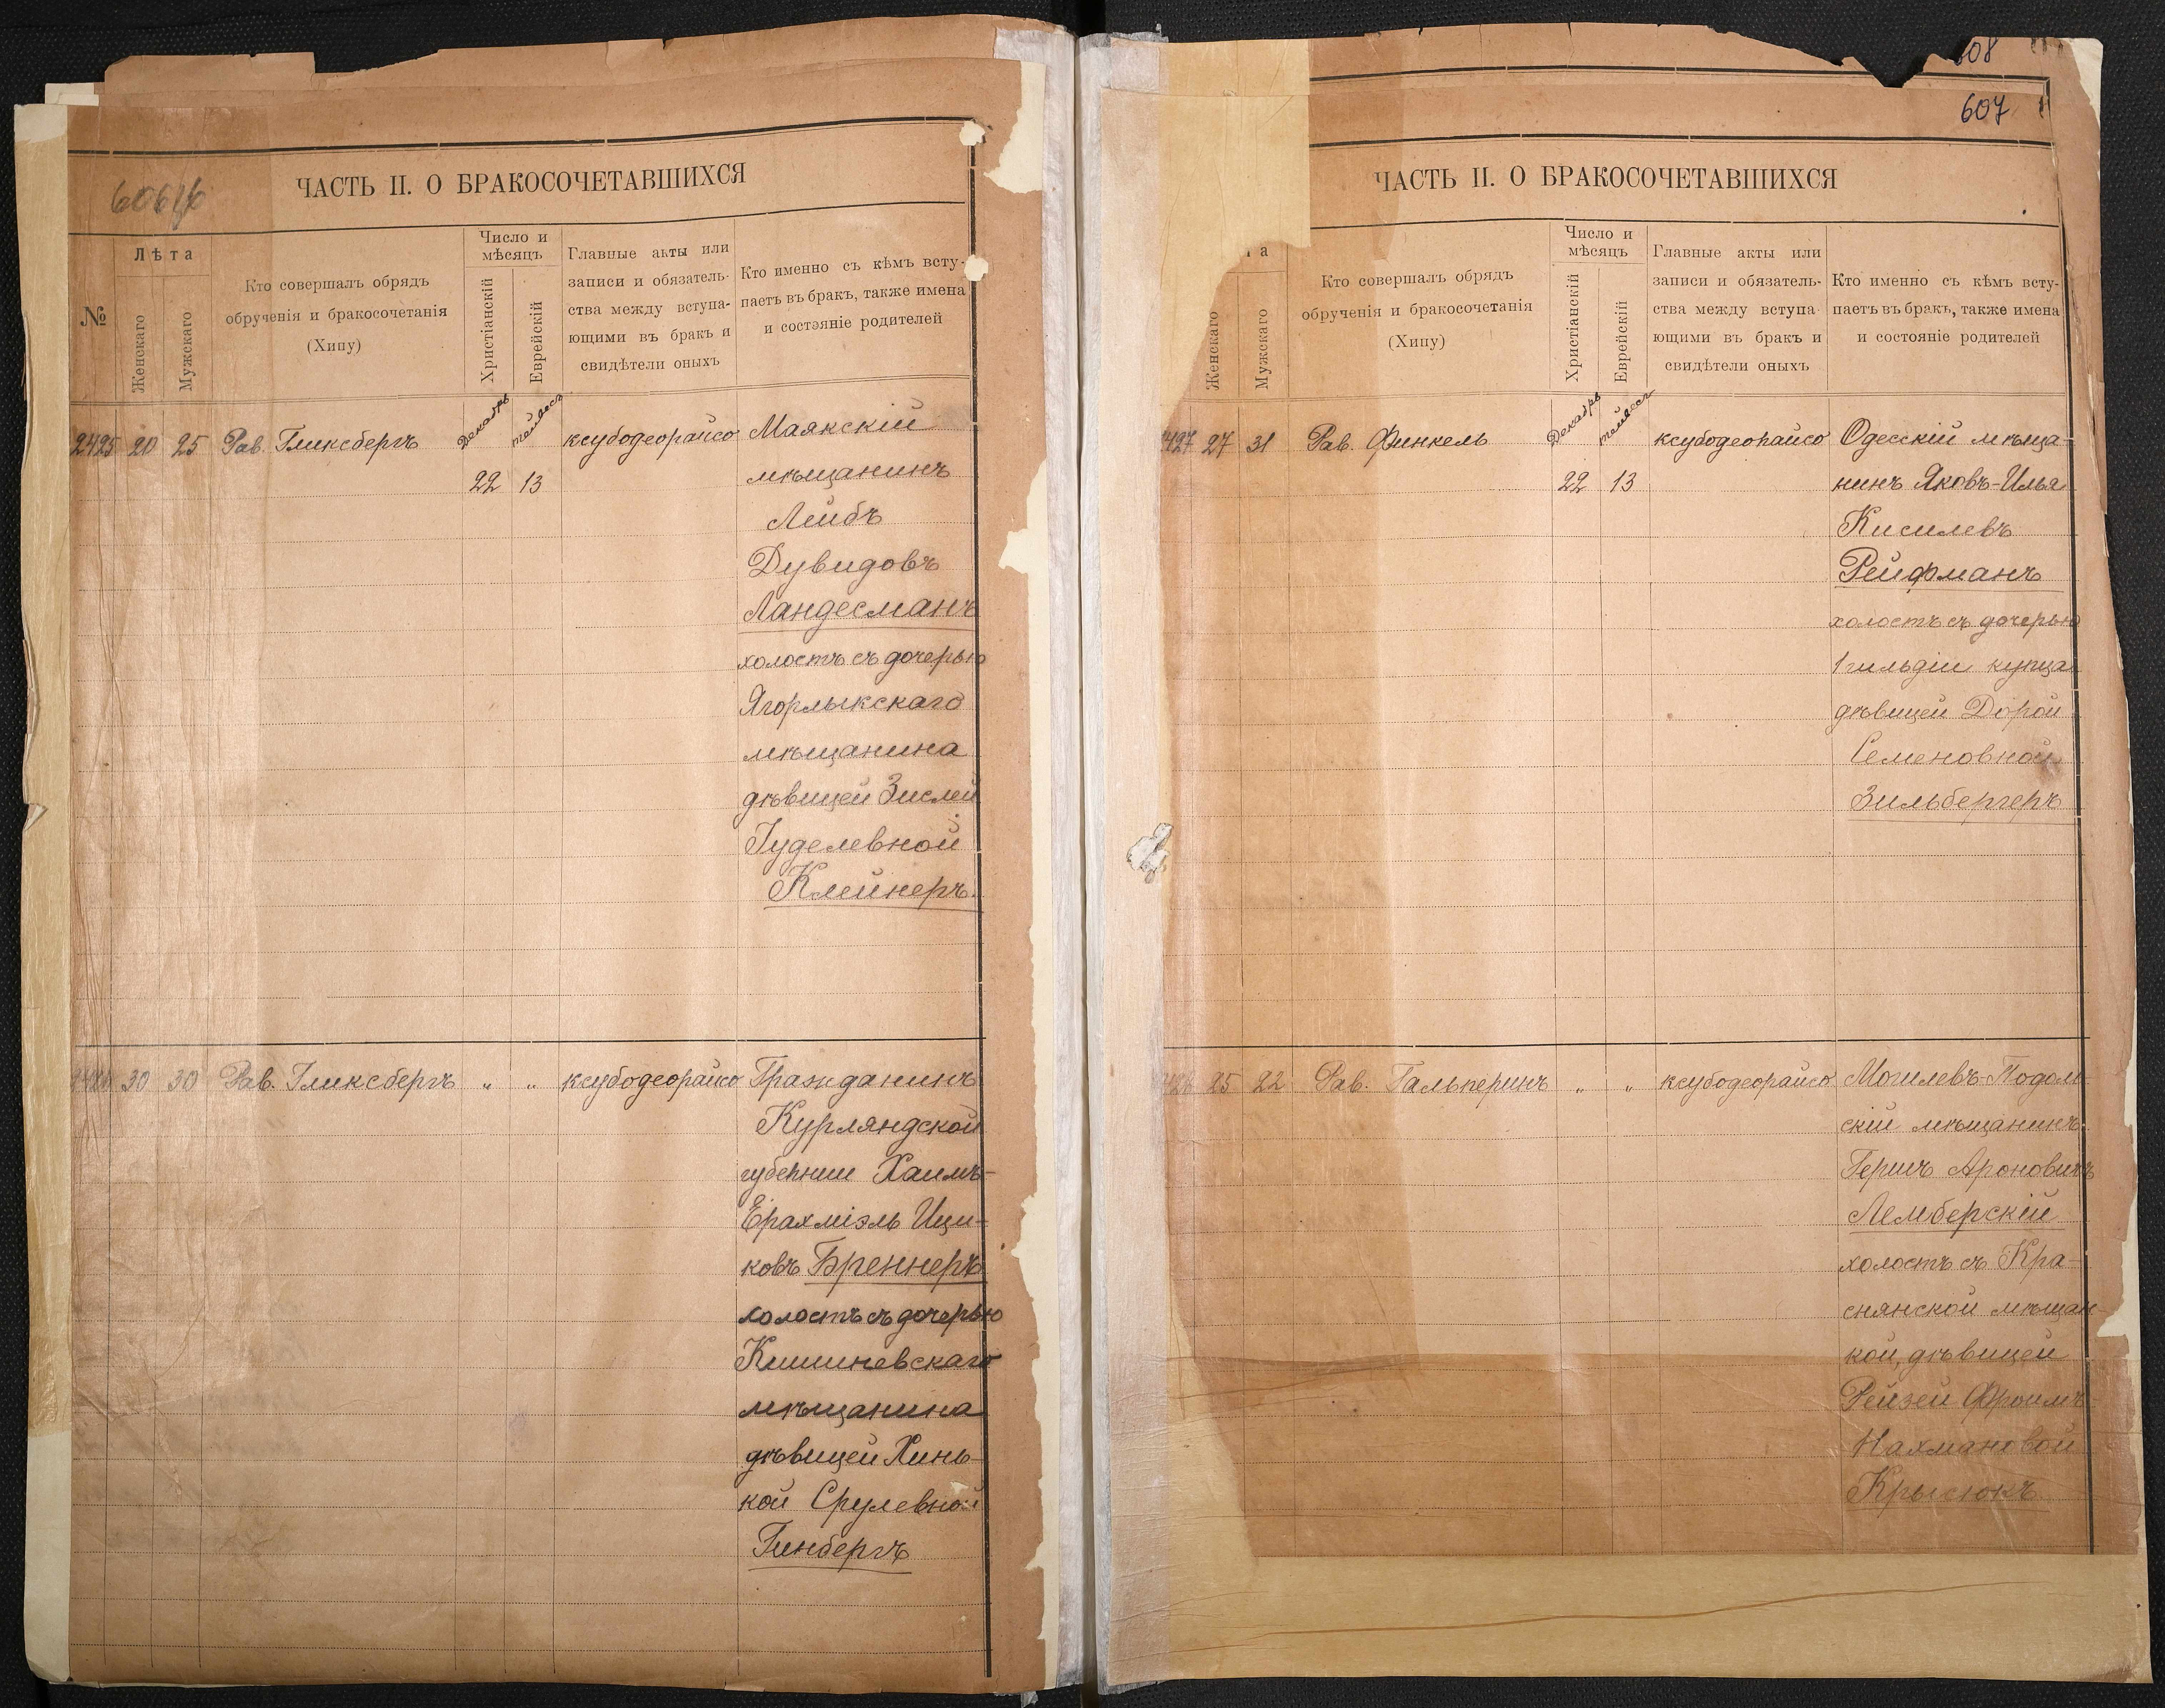 ЧАСТЬ II. О БРАКОСОЧЕТАВШИХСЯ
№
Лѣта
Женскаго
Мужскаго
Кто совершалъ обрядъ
обрученія и бракосочетанія
(Хипу)
Число и
мѣсяцъ
Христіанскій
Еврейскій
Главные акты или
записи и обязатель-
ства между вступа-
ющими въ бракъ и
свидѣтели оныхъ
Кто именно съ кѣмъ всту-
паетъ въ бракъ, также имена
и состояніе родителей
2425 20 25 Рав. Гликсбергъ Декабрь тейвесъ ксубодеорайсо Маякскій
22 13 мѣщанинъ
Лейбъ
Дувидовъ
Ландесманъ
холостъ съ дочерью
Ягорлыкскаго
мѣщанина
дѣвицей Зислей
Іуделевной
Клейнеръ.
30 30 Рав. Гликсбергъ " " ксубодеорайсо Гражданинъ
Курляндской
губерніи Хаимъ-
Ерахміэль Ици-
ковъ Бреннеръ
холостъ съ дочерью
Кишиневскаго
мѣщанина
дѣвицей Хинь-
кой Срулевной
Гинбергъ
608
607
ЧАСТЬ II. О БРАКОСОЧЕТАВШИХСЯ
та
Женскаго
Мужскаго
Кто совершалъ обрядъ
обрученія и бракосочетанія
(Хипу)
Число и
мѣсяцъ
Христіанскій
Еврейскій
Главные акты или
записи и обязатель-
ства между вступа-
ющими въ бракъ и
свидѣтели оныхъ
Кто именно съ кѣмъ всту-
паетъ въ бракъ, также имена
и состояніе родителей
2427 27 31 Рав. Финкель Декабрь тейвесъ ксубодеорайсо Одесскій мѣща-
22 13 нинъ Яковъ-Илья
Кисилевъ
Рейфманъ
холостъ съ дочерью
1 гильдіи купца
дѣвицей Дорой
Семеновной
Зильбергеръ
25 22 Рав. Гальперинъ " " ксубодеорайсо Могилевъ-Подоль-
скій мѣщанинъ
Гершъ Ароновичъ
Лемберскій
холостъ съ Кра-
снянской мѣщан-
кой, дѣвицей
Рейзей Фроимъ-
Нахмановой
Крысюкъ